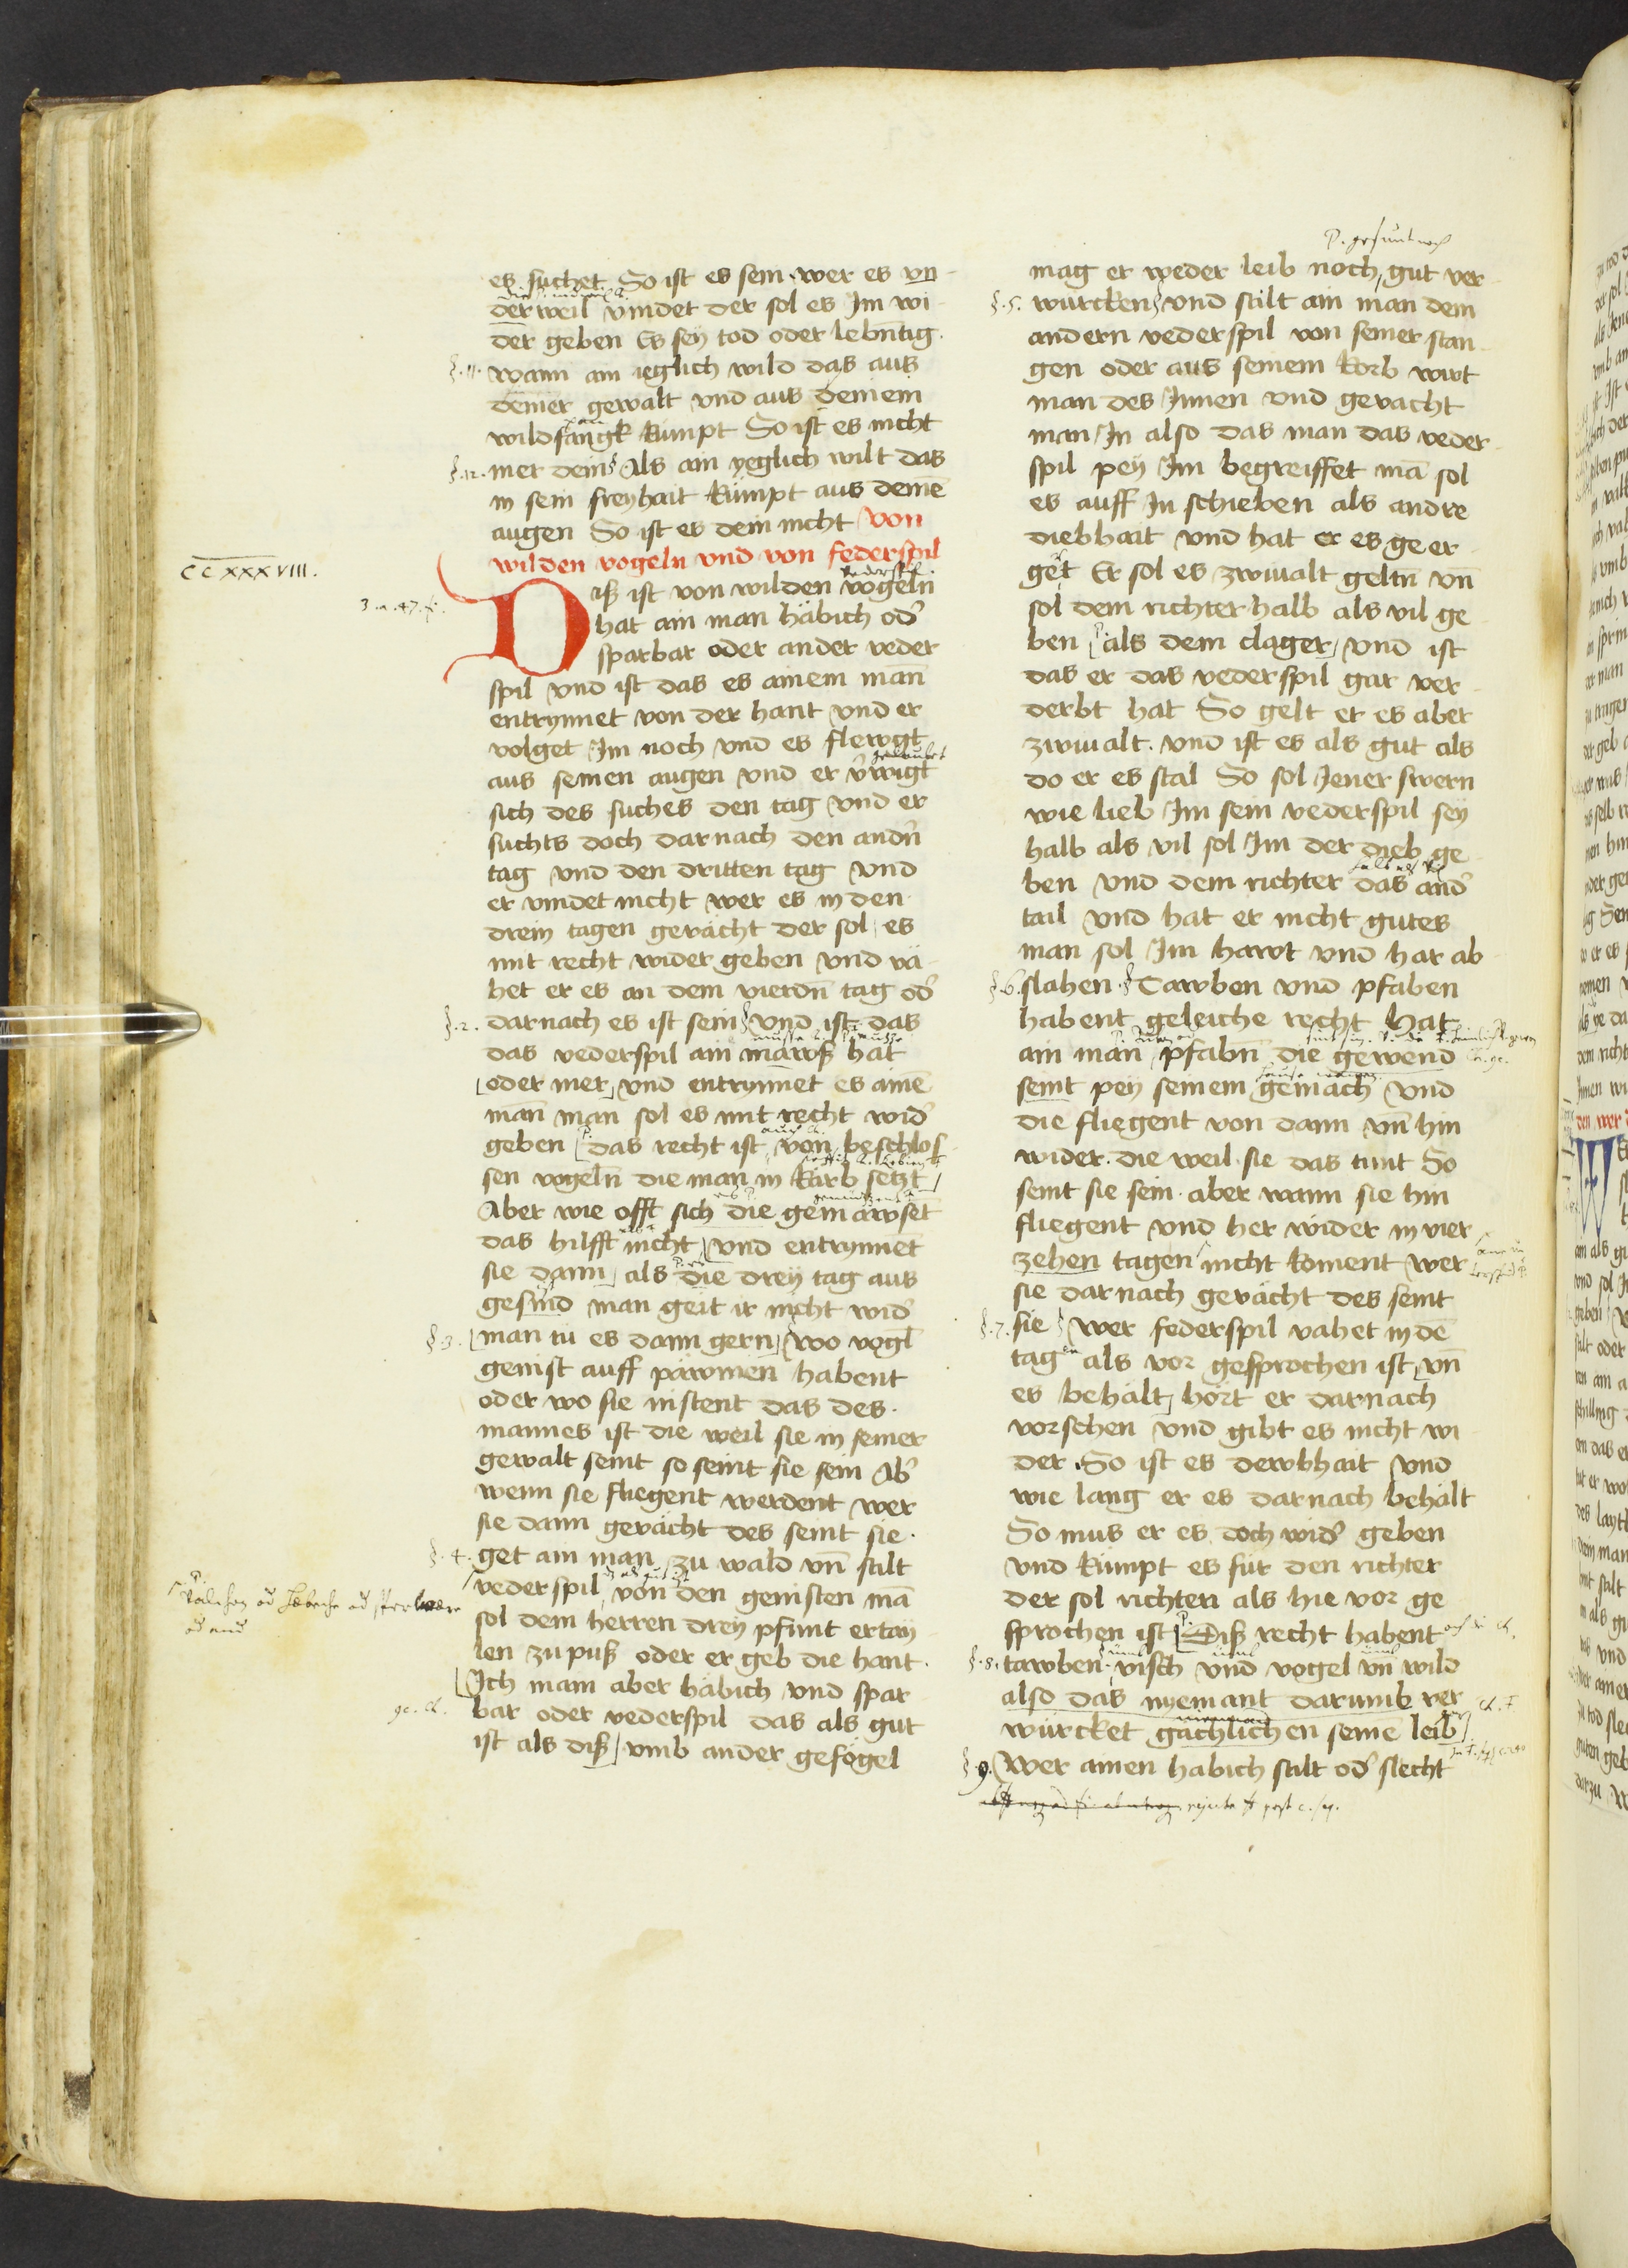 es suchet So ist es sein wer es vn
der weil vindet der sol es Im wi
der geben Es sey tod oder lebntig
§.11. wann ain ieglich wild das aus
deiner gewalt vnd aus deinem
wildfangk kumpt So ist es nicht
§.12. mer dein Als ain yeglich wilt das
in sein freyhait kumpt aus deinē
augen So ist es dein nicht Von
wilden vogeln vnd von federspil
CCXXXVIII.
Diß ist von wilden vogeln
hat ain man häbich od̛
sparbar oder ander veder
spil vnd ist das es ainem mann
entrynnet von der hant vnd er
volget Im noch vnd es flewgt
aus seinen augen vnd er v̛wigt
sich des suches den tag vnd er
suchts doch darnach den andn̄
tag vnd den dritten tag vnd
er vindet nicht wer es in den
drein tagen gevächt der sol es
mit recht wider geben vnd vä
het er es an dem vierdn̄ tag od̛
§.2. darnach es ist sein vnd ist das
das vederspil ain mawß hat
oder mer vnd entrynnet es ainē
man̄ man sol es mit recht wid̛
geben das recht ist von beschlos
sen vogeln̄ die man in karb setzt
Aber wie offt sich die gemäwset
das hilfft nicht vnd entrynnet
sie dann als die drey tag aus
gesind man geit ir nicht wid̛
§.3. man tu es dann gern wo vogl
genist auff päwmen habent
oder wo sie nistent das des
mannes ist die weil sie in seiner
gewalt seint so seint sie sein Ab̛
wenn sie fliegent werdent wer
sie dann gevächt des seint sie
§.4. get ain man zu wald vn̄ stilt
vederspil von den genisten mā
sol dem herren drey pfunt ertay
len zu puß oder er geb die hant
Ich main aber häbich vnd spar
bar oder vederspil das als gut
ist als diß vmb ander gefögel
mag er weder leib noch gut ver
§.5. würcken vnd stilt ain man dem
andern vederspil von seiner stan
gen oder aus seinem korb wirt
man des Innen vnd gevacht
man In also das man das veder
spil pey Im begreiffet mā sol
es auff In schieben als andre
diebhait vnd hat er es geer
get Er sol es zwiualt geltn̄ vn̄
sol dem richter halb als vil ge
ben als dem clager vnd ist
das er das vederspil gar ver
derbt hat So gelt er es aber
zwiualt vnd ist es als gut als
do er es stal So sol Jener swern
wie lieb Im sein vederspil sey
halb als vil sol Im der dieb ge
ben vnd dem richter das and̛
tail vnd hat er nicht gutes
man sol Im hawt vnd har ab
§.6. slahen Tawben vnd pfaben
habent geleiche recht hat
ain man pfabn̄ die gewend
seint pey seinem gemach vnd
die fliegent von dann vn̄ hin
wider die weil sie das tunt So
seint sie sein aber wann sie hin
fliegent vnd her wider in vier
zehen tagen nicht koment wer
sie darnach gevächt des seint
§.7. sie wer federspil vahet in dē
tagen als vor gesprochen ist vn̄
es behält hört er darnach
vorschen vnd gibt es nicht wi
der So ist es dewbhait vnd
wie lang er es darnach behält
So mus er es doch wid̛ geben
vnd kumpt es für den richter
der sol richten als hie vor ge
sprochen ist Diß recht habent
§.8. tawben visch vnd vogel vn̄ wild
also das nyemant darumb ver
würcket gächlichen seinē leib
§.9. Wer ainen habich stilt od̛ slecht